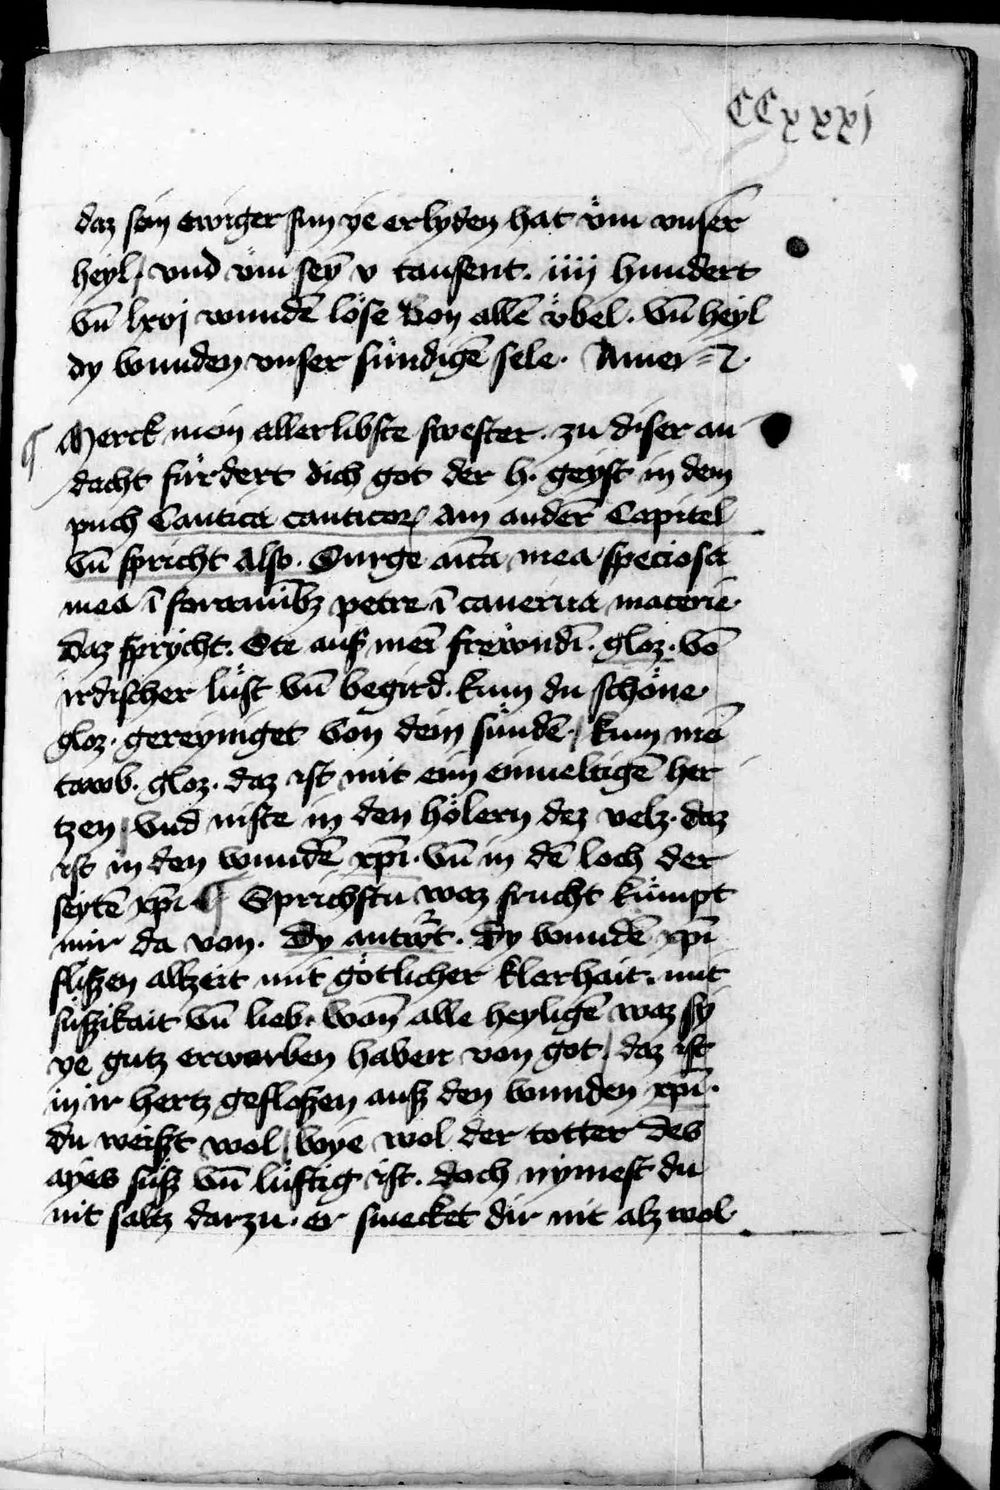 CCxxxj
daz sein ewiger sun ye erlyden hat vm̈ vnser
heyl / vnd vm̈ sey̅ v tausent. iiij hundert
vn̅ lxvj wunde̅ löse von alle̅ v̈bel. vn̅ heyl
dy wunden vnser sündige̅ sele. Amen
¶ Merck mein allerlibste swester. zu diser an
dacht fürdert dich got der h. geyst in dem
puch Cantica canticoꝝ am ander̅ Capitel
vn̅ spricht also. Surge a̅ica mea speciosa
mea i̅ forami̅bz petre i̅ cauerna macerie.
daz spricht. Ste auf mei̅ frewndi̅. gloz. vo̅
irdischer lüst vn̅ begird. kum du schöne.
gloz. gereyniget von dein sünde̅ / kum mei̅
tawb. gloz. daz ist mit eim einueltige̅ her
tzen / vnd niste in den hölern dez velz. daz
ist in den wunde̅ xp̅i. vn̅ in de̅ loch der
seyte̅ xp̅i ¶ Sprichstu waz frucht kümpt
mir da von. Dy antw̅rt. Dy wunde̅ xp̅i
flißen allzeit mit götlicher klarhait. mit
süßikait vn̅ lieb. wan̅ alle heylige̅ waz sy
ye gutz erworben haben von got / daz ist
in ir hertz gefloßen auß den wunden xp̅i.
du weißt wol / wye wol der totter des
ayes süß vn̅ lüstig ist. doch nymest du
nit saltz darzu. er smecket dir nit alz wol.